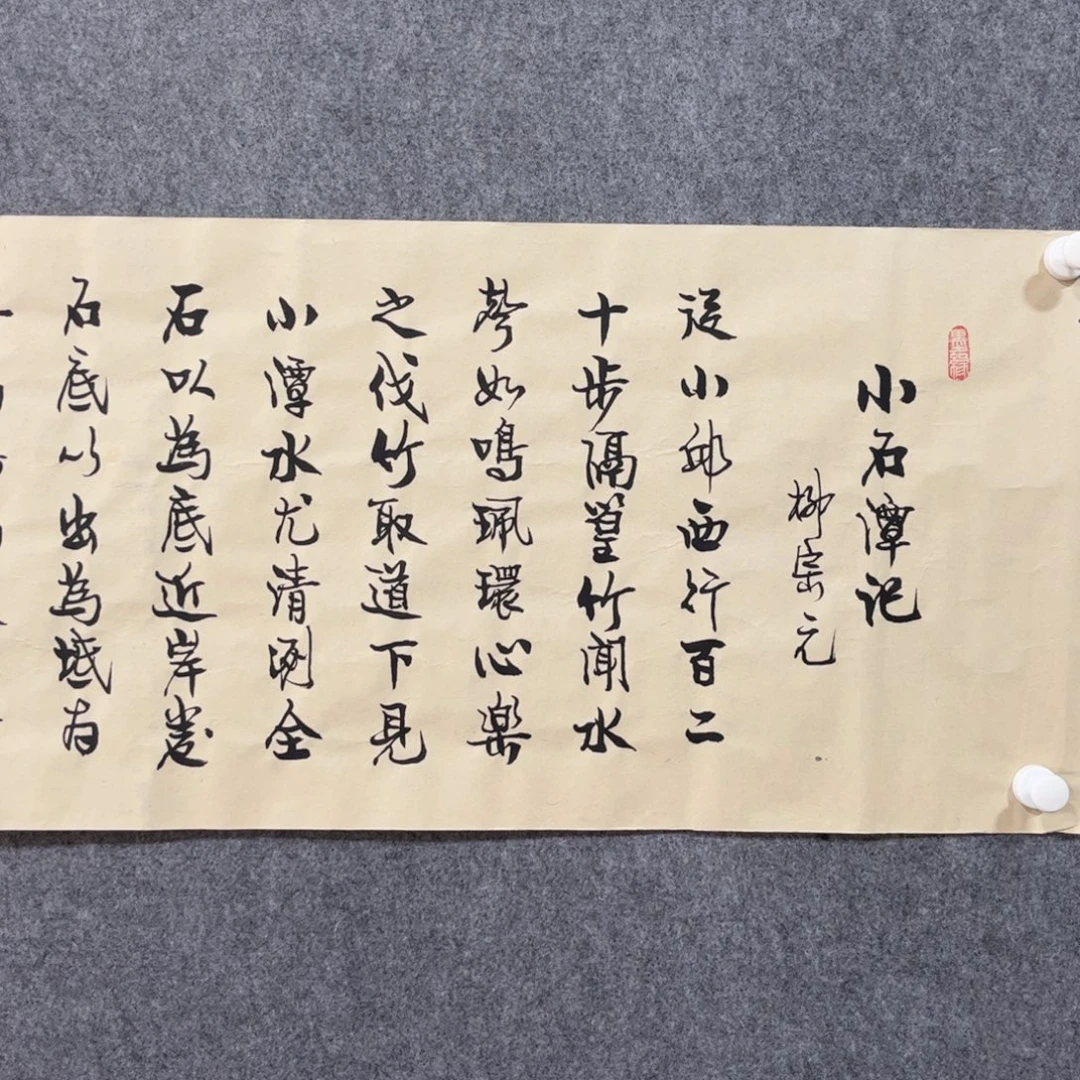 小石潭记
柳宗元
從小邱西行百二
十步隔篁竹聞水
聲如鳴珮環心樂
之伐竹取道下見
小潭水尤清洌全
石以為底近岸卷
石底以出為